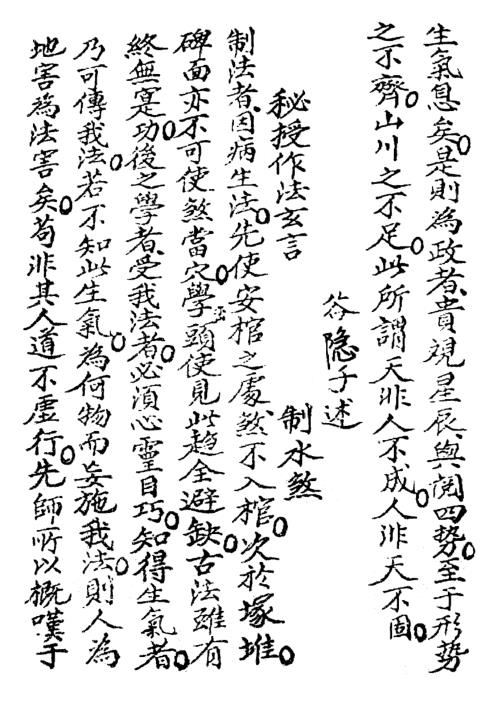 生氣息矣是則為政者貴視星辰與閲四勢至于形勢
之不齊山川之不足此所謂天非人不成人非天不固
谷隐子述
秘授作法玄言
制水煞
制法者因病生法先使安棺之處煞不入棺次於塚堆
碑面亦不可使煞當穴學頭使見此趋全避缺古法雖有
終無寔功後之學者受我法者必須心靈目巧知得生氣者
乃可傳我法若不知此生氣為何物而妄施我法則人為
地害為法害矣苟非其人道不虛行先師所以概嘆于